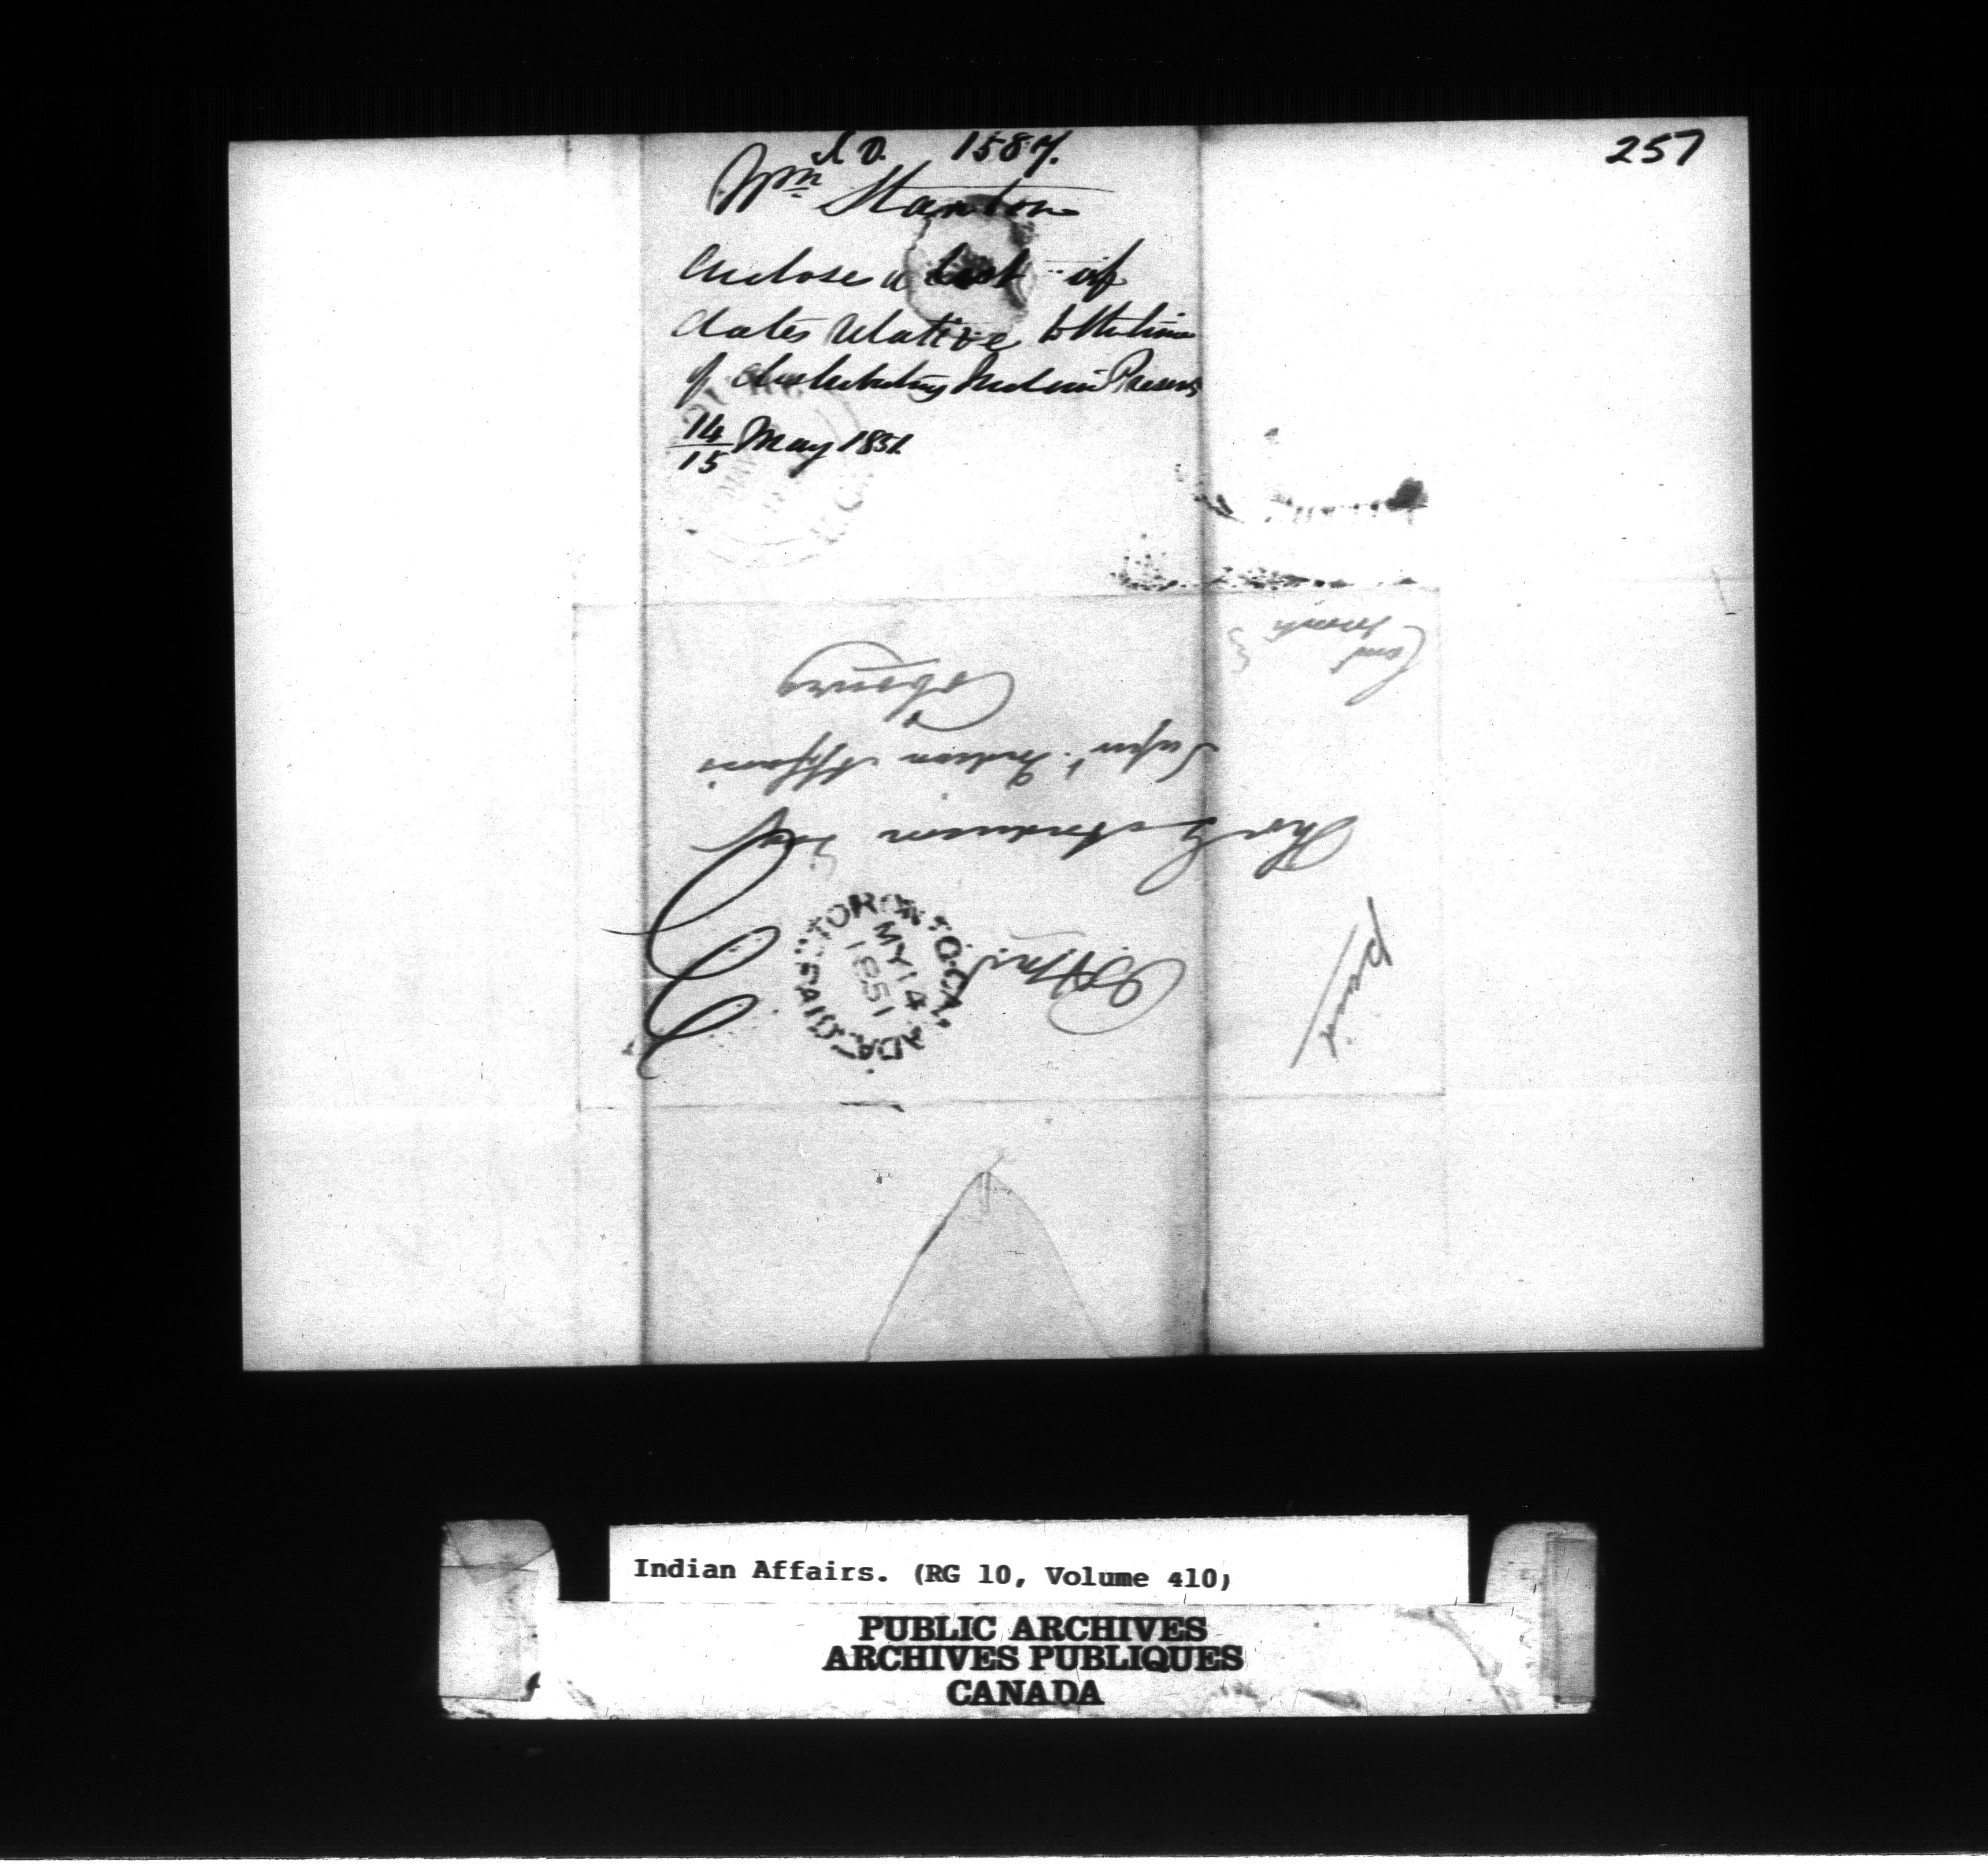 257
I.D. 1587.
Wm Stanton
Enclose a List of
dates relative to the time
of distributing Indian Presents
14/15 May 1851
Comt
Cobourg
Supert. Indian Affairs
Thos G Anderson Esqr
TORONTO. CANADA.
MY 14
1851
PAID.
Paid
Indian Affairs. (RG 10, Volume 410)
PUBLIC ARCHIVES
ARCHIVES PUBLIQUES
CANADA